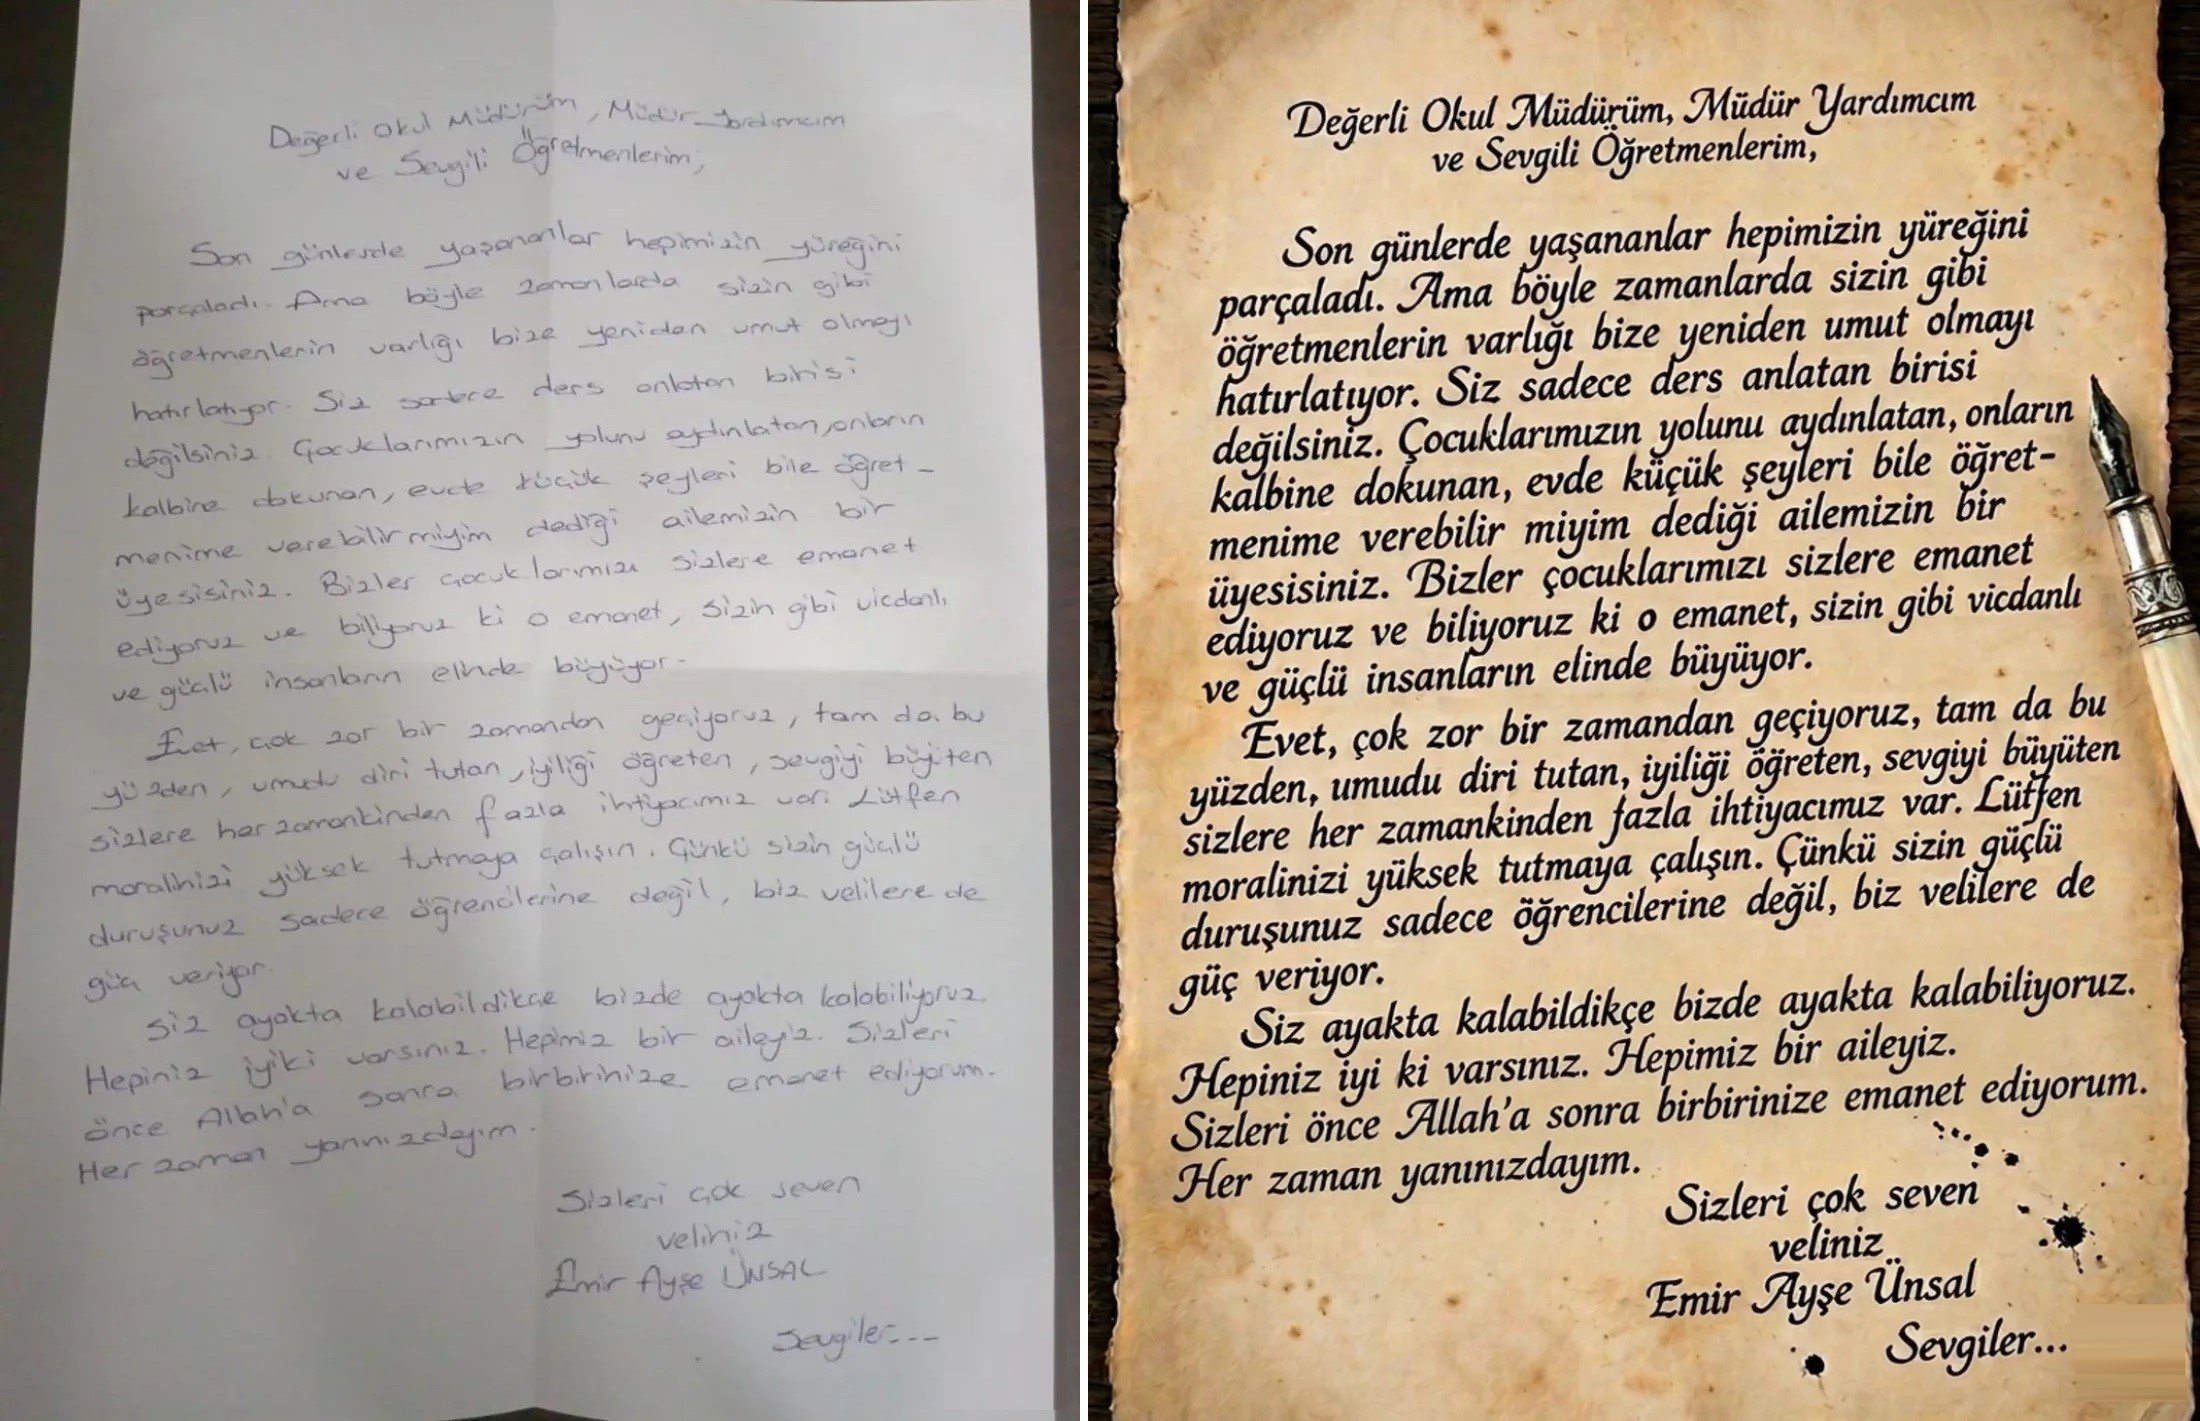 Değerli Okul Müdürüm, Müdür Yardımcım
ve Sevgili Öğretmenlerim,
Son günlerde yaşananlar hepimizin yüreğini
parçaladı. Ama böyle zamanlarda sizin gibi
öğretmenlerin varlığı bize yeniden umut olmayı
hatırlatıyor. Siz sadece ders anlatan birisi
değilsiniz. Çocuklarımızın yolunu aydınlatan, onların
kalbine dokunan, evde küçük şeyleri bile öğret-
menime verebilir miyim dediği ailemizin bir
üyesisiniz. Bizler çocuklarımızı sizlere emanet
ediyoruz ve biliyoruz ki o emanet, sizin gibi vicdanlı
ve güçlü insanların elinde büyüyor.
Evet, çok zor bir zamandan geçiyoruz, tam da bu
yüzden, umudu diri tutan, iyiliği öğreten, sevgiyi büyüten
sizlere her zamankinden fazla ihtiyacımız var. Lütfen
moralinizi yüksek tutmaya çalışın. Çünkü sizin güçlü
duruşunuz sadece öğrencilerine değil, biz velilere de
güç veriyor.
Siz ayakta kalabildikçe bizde ayakta kalabiliyoruz.
Hepiniz iyiki varsınız. Hepimiz bir aileyiz. Sizleri
önce Allah'a sonra birbirinize emanet ediyorum.
Her zaman yanınızdayım.
Sizleri çok seven
veliniz
Emir Ayşe ÜNSAL
Sevgiler...
Değerli Okul Müdürüm, Müdür Yardımcım
ve Sevgili Öğretmenlerim,
Son günlerde yaşananlar hepimizin yüreğini
parçaladı. Ama böyle zamanlarda sizin gibi
öğretmenlerin varlığı bize yeniden umut olmayı
hatırlatıyor. Siz sadece ders anlatan birisi
değilsiniz. Çocuklarımızın yolunu aydınlatan, onların
kalbine dokunan, evde küçük şeyleri bile öğret-
menime verebilir miyim dediği ailemizin bir
üyesisiniz. Bizler çocuklarımızı sizlere emanet
ediyoruz ve biliyoruz ki o emanet, sizin gibi vicdanlı
ve güçlü insanların elinde büyüyor.
Evet, çok zor bir zamandan geçiyoruz, tam da bu
yüzden, umudu diri tutan, iyiliği öğreten, sevgiyi büyüten
sizlere her zamankinden fazla ihtiyacımız var. Lütfen
moralinizi yüksek tutmaya çalışın. Çünkü sizin güçlü
duruşunuz sadece öğrencilerine değil, biz velilere de
güç veriyor.
Siz ayakta kalabildikçe bizde ayakta kalabiliyoruz.
Hepiniz iyi ki varsınız. Hepimiz bir aileyiz.
Sizleri önce Allah'a sonra birbirinize emanet ediyorum.
Her zaman yanınızdayım.
Sizleri çok seven
veliniz
Emir Ayşe Ünsal
Sevgiler...